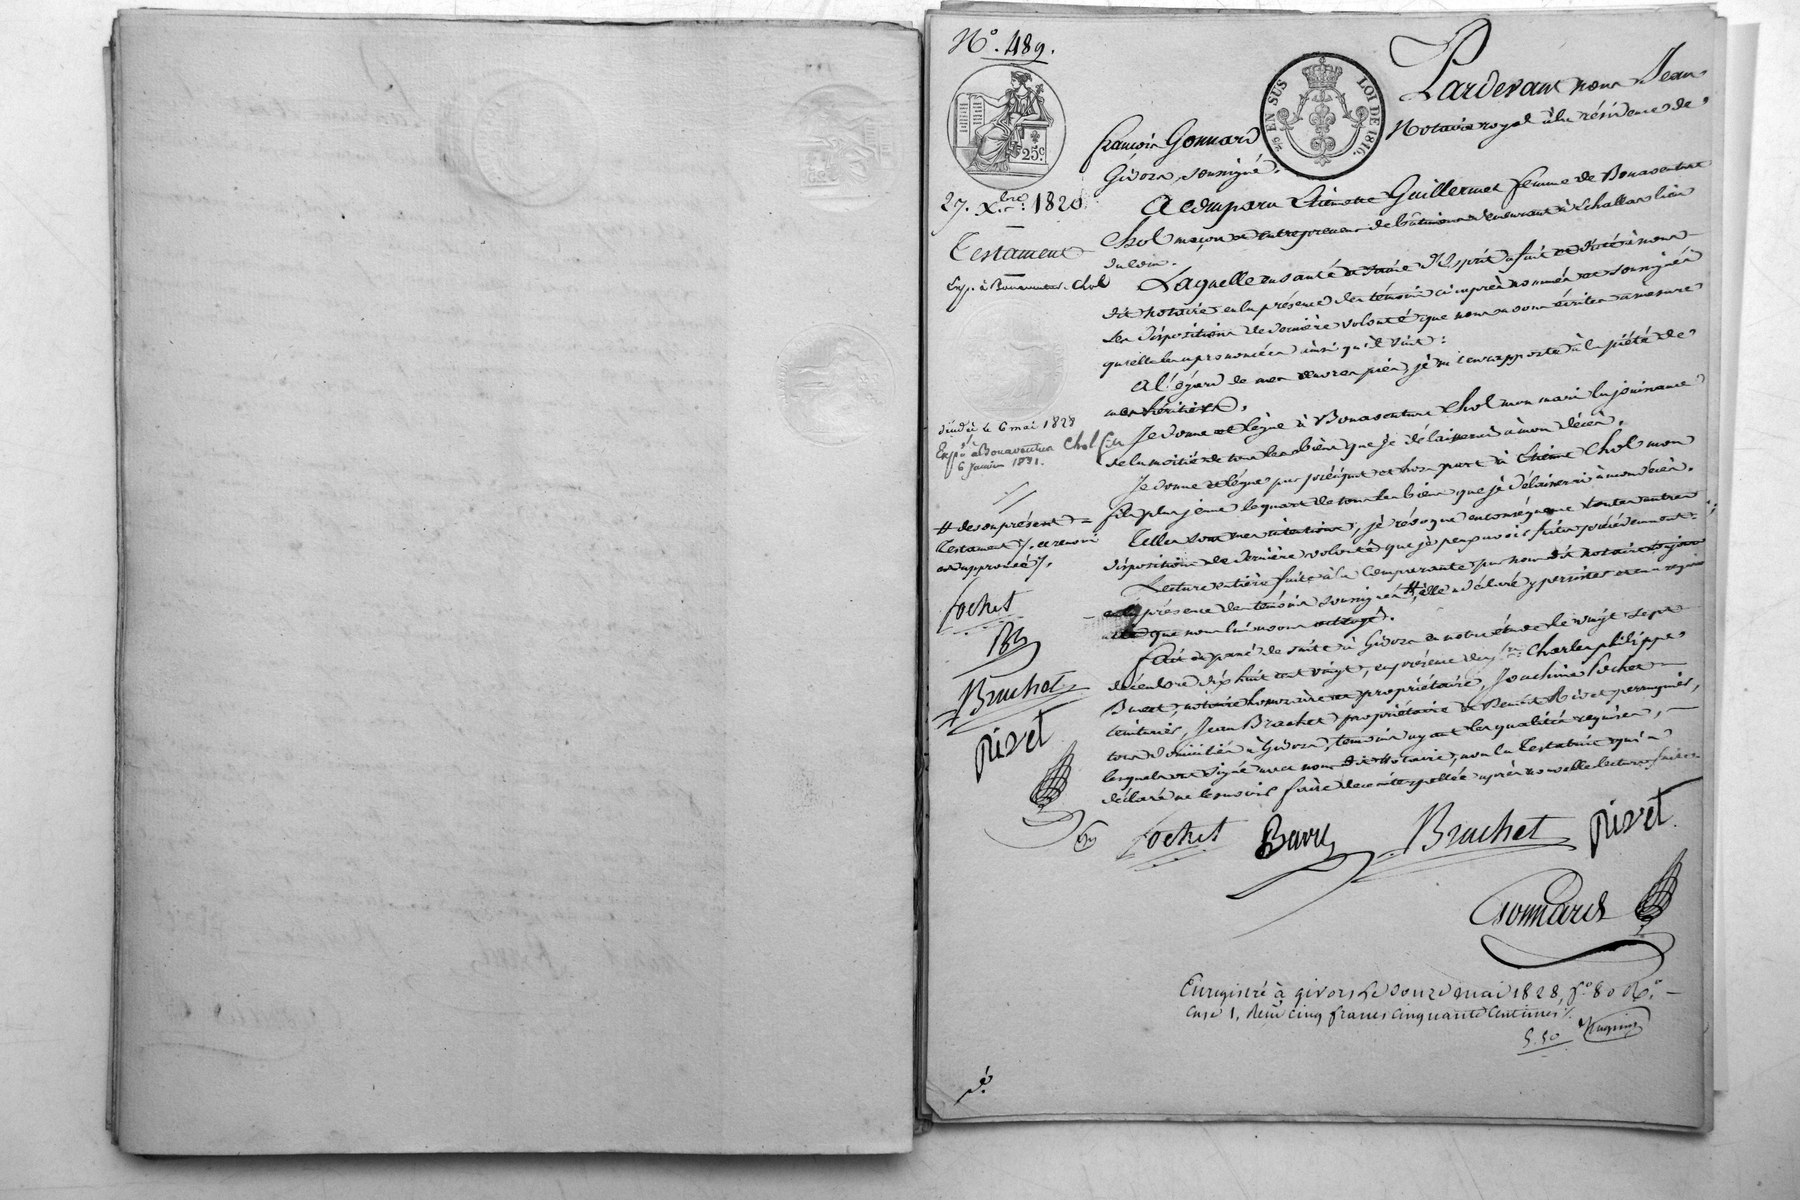 N.° 489.
25.c
EN SUS
LOI DE 1816.
27. X.bre 1820
Testament
Exp. à Bonaventure Chol
Pardevant nous Jean
françois Gonnard Notaire royal à la résidence de
Givors, soussigné.
A comparu Etiennette Guillermet femme de Bonaventure
Chol maçon et entrepreneur de bâtimens demeurant à Echallas lieu
Laquelle en santé et saine d'Esprit a fait et dicté à nous
dit notaire en la présence des témoins ci après nommés et soussignés
Les dispositions de dernière volonté que nous avons écrites à mesure
qu'elle les a prononcées ainsi qu'il suit :
A l'égard de mes œuvres pies, je m'en rapporte à la piété de
mes héritiers.
Je donne et lègue à Bonaventure Chol mon mari la jouissance
de la moitié de tous les biens que je délaisserai à mon décès.
Je donne et lègue par préciput et hors part à Etienne Chol mon
fils plus jeune le quart de tous les biens que je délaisserai à mon décès.
Telles sont mes intentions, je révoque en conséquence toutes autres
dispositions de dernière volonté que je peux avoir faites précédemment
Lecture entière faite à la comparante par nous dit notaire toujours
en la présence des témoins soussignés # elle a déclaré y persister
que nous lui avons
fait et passé de suite à Givors en notre étude le vingt sept
décembre dix huit cent vingt, en présence de s.rs Charles philippe
Bavet, notaire honoraire et propriétaire, Joachim Cochet
teinturier, Jean Brachet propriétaire et Benoît Rivet perruquier,
tous domiciliés à Givors, témoins ayant les qualités requises,
lesquels ont signé avec nous dit Notaire, non la Testatrice qui a
déclaré ne le savoir faire de ce interpellée après nouvelle lecture faite
6 mai 1828
Exp. à Bonaventure Chol fils
6 janvier 1831.
# de son présent
Testament /. et renvoi
approuvé /.
Cochet
Brachet
Rivet
Cochet Bavet Brachet Rivet
Gonnard
Enregistré à givors le douze mai 1828, f.° 80 R.°
Case 1, Reçu cinq francs cinquante Centimes /.
5.50